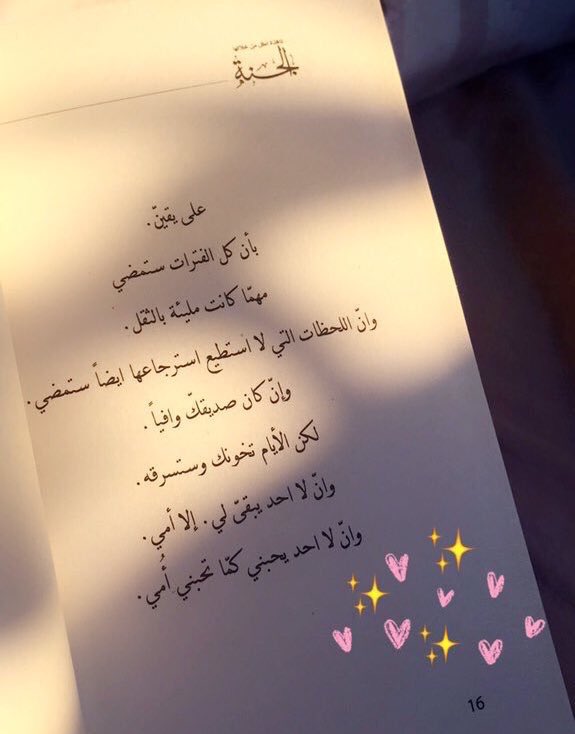 الجنة
على يقينّ.
بأن كل الفترات ستمضي
مهمّا كانت مليئة بالثقل.
وانّ اللحظات التي لا استطيع استرجاعها ايضاً ستمضي.
وإنّ كان صديقكّ وافياً.
لكن الأيام تخونك وستسرقه.
وانّ لا احد يبقىّ لي. إلا أمي.
وانّ لا احد يحبني كمّا تحبني أُمي.
16